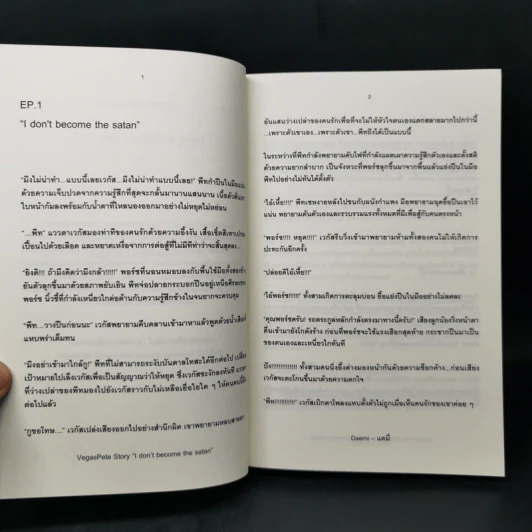 1
EP.1
"I don't become the satan"
"มึงไม่น่าทำ...แบบนี้เลยเวกัส...มึงไม่น่าทำแบบนี้เลย!" พีทกำปืนในมือแน่น
ด้วยความเจ็บปวดจากความรู้สึกที่สุดจะกลั้นมานานแสนนาน เนื้อตัวสั่นเทา
ใบหน้าก้มลงพร้อมกับน้ำตาที่ไหลนองออกมาอย่างไม่หยุดไม่หย่อน
"...พีท" แววตาเวกัสมองท่าทีของคนรักด้วยความอึ้งงัน เสื้อเชิ้ตสีเทาเปรอะ
เปื้อนไปด้วยเลือด และหยาดเหงื่อจากการต่อสู้ที่ไม่มีทีท่าว่าจะสิ้นสุดลง..
"ยิงดิ!! ถ้ามึงคิดว่ามึงกล้า!!!!!" พอร์ชที่นอนหมอบลงกับพื้นใช้มือทั้งสองข้าง
ยันตัวลุกขึ้นมาด้วยสภาพยับเยิน พีทจ่อปลายกระบอกปืนอยู่เหนือศีรษะของ
พอร์ช นิ้วชี้ที่กำลังเหนี่ยวไกต่อต้านกับความรู้สึกข้างในจนยากจะควบคุม
"พีท...วางปืนก่อนนะ" เวกัสพยายามคืบคลานเข้ามาหาแล้วพูดด้วยน้ำเสียงที่
แหบพร่าเต็มทน
"มึงอย่าเข้ามาใกล้กู!" พีทที่ไม่สามารถระงับบันดาลโทสะได้อีกต่อไป เปลี่ยน
เป้าหมายไปเล็งเวกัสเพื่อเป็นสัญญาณว่าให้หยุด ซึ่งเวกัสชะงักลงทันที แววตา
ที่ว่างเปล่าของพีทมองไปยังเวกัสราวกับไม่เหลือเยื่อใยใด ๆ ให้คนคนนี้อีก
ต่อไปแล้ว
"กูขอโทษ...." เวกัสเปล่งเสียงออกไปอย่างสำนึกผิด เขาพยายามหลบสายตา
VegasPete Story "I don't become the satan"
2
อันแสนว่างเปล่าของคนรักเพื่อที่จะไม่ให้หัวใจตนเองแตกสลายมากไปกว่านี้
...เพราะตัวเขาเอง...เพราะตัวเขา...พีทถึงได้เป็นแบบนี้
ในระหว่างที่พีทกำลังพยายามดับไฟที่กำลังแผดเผาความรู้สึกตัวเองและตั้งสติ
ด้วยความยากลำบาก เป็นจังหวะที่พอร์ชลุกขึ้นมาจากพื้นแล้วแย่งปืนในมือ
พีทไปอย่างไม่ทันได้ตั้งตัว
"ไอ้เหี้ย!!!" พีทเซหงายหลังไปชนกับผนังกำแพง มือพยายามฉุดยื้อปืนเอาไว้
แน่น พยายามดันตัวเองและรวบรวมแรงทั้งหมดที่มีเพื่อสู้กับคนตรงหน้า
"พอร์ช!!!! หยุด!!!!" เวกัสรีบวิ่งเข้ามาพยายามห้ามทั้งสองคนไม่ให้เกิดการ
ปะทะกันอีกครั้ง
"ปล่อยดิไอ้เหี้ย!!!"
"ไอ้พอร์ช!!!!!" ทั้งสามเกิดการตะลุมบอน ยื้อแย่งปืนในมืออย่างไม่ลดละ
"คุณพอร์ชครับ! รถตระกูลหลักกำลังตรงมาทางนี้ครับ!" เสียงลูกน้องวิ่งหน้าตา
ตื่นเข้ามายังโกดังร้าง ก่อนที่พอร์ชจะใช้แรงเฮือกสุดท้าย กระชากปืนมาเป็น
ของตนเองและเหนี่ยวไกทันที
ปัง!!!!!!!!!!!! ทั้งสามคนนิ่งอึ้งต่างมองหน้ากันด้วยความช็อกค้าง...ก่อนเสียง
เวกัสจะตะโกนขึ้นมาด้วยความตกใจ
"พีท!!!!!!!!!!!!" เวกัสเบิกตาโพลงแทบตั้งตัวไม่ถูกเมื่อเห็นคนรักของเขาค่อย ๆ
Daemi – แดมี่